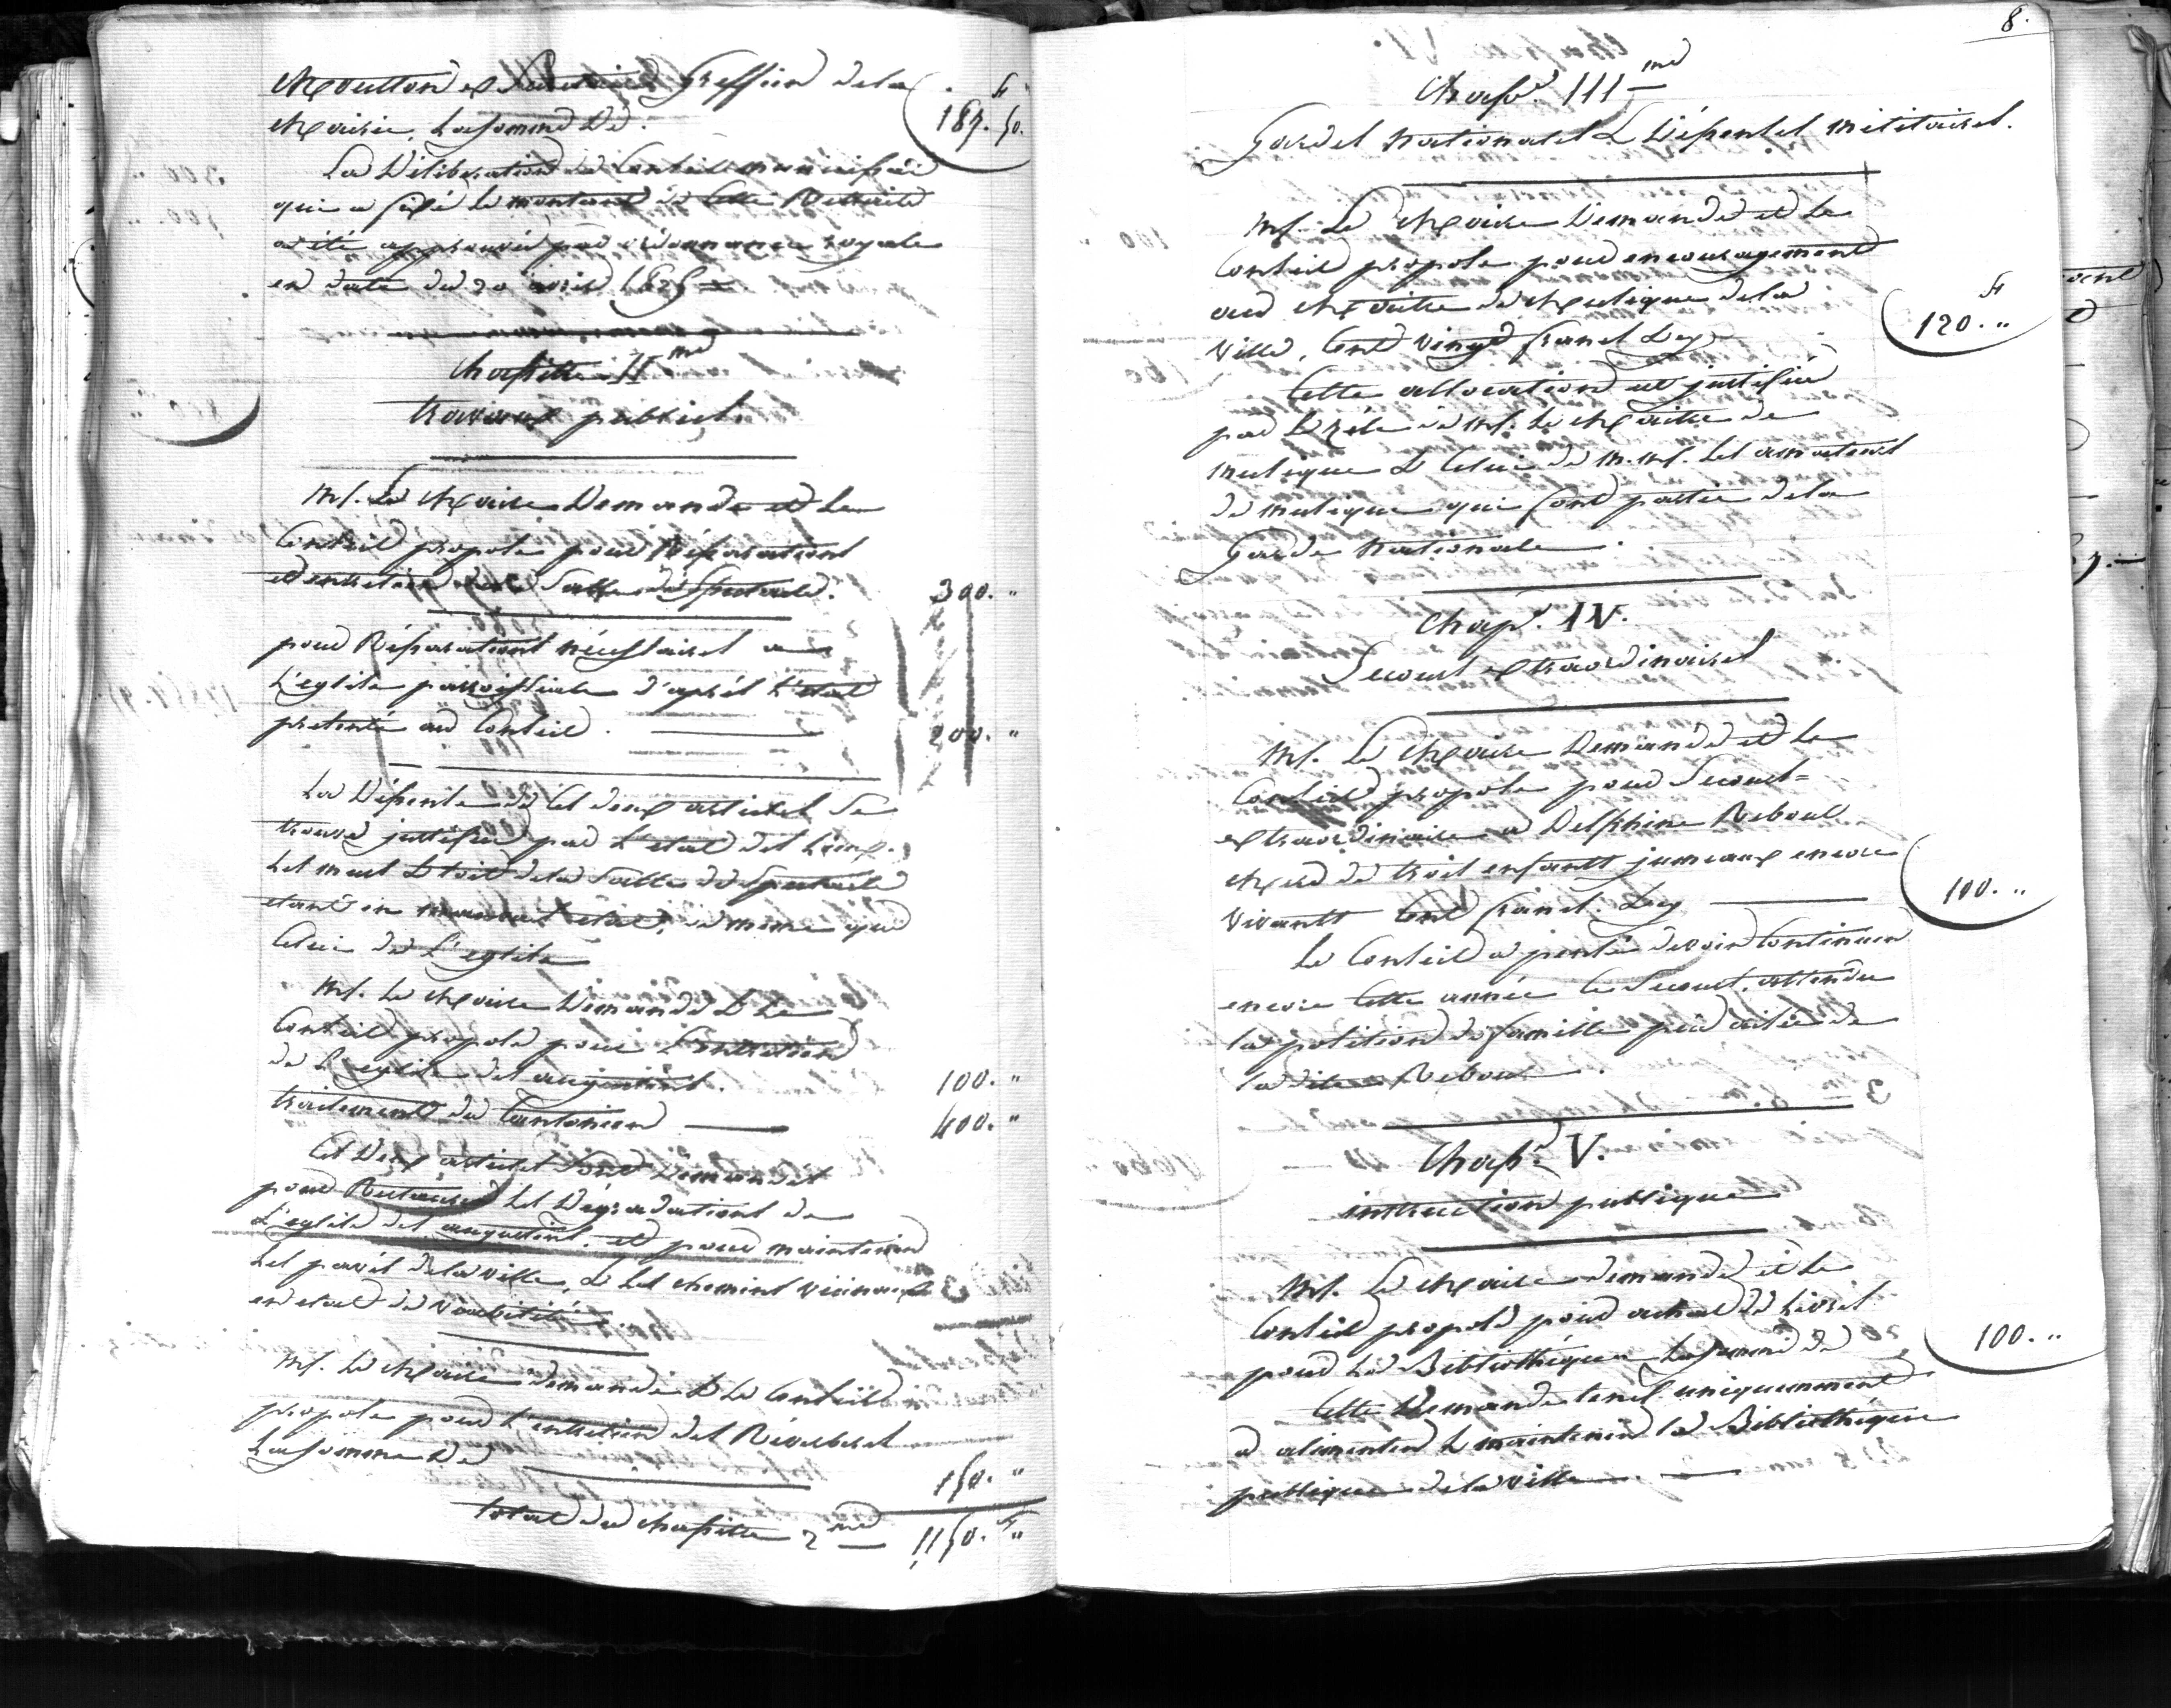 Moutton ex Secretaire Greffier de la
Mairie, la somme de. 187. 50.
La Déliberation du Conseil municipal
qui a fixé le montant de cette Retraite
a été approuvée par ordonnance royale
en date du 20 avril 1825
Chapitre II.me
travaux publics
Mr. Le Maire Demande et Le
Conseil propose pour Réparations
et entretien de la Salle de Spectacle. 300. "
pour Réparations nécessaires a
L'eglise parroissiale d'après l'etat
presenté au Conseil. 200. "
La Dépense de ces deux articles se
trouve justifiée par l'etat des lieux.
Les murs et toit de la Salle de Spectacle
etant en mauvais etat, de même que
Celui de L'eglise
Mr. Le Maire Demande & Le
Conseil propose pour L'entretien
de L'eglise des augustins. 100. "
traitement du Cantonier 400. "
Ces Deux articles sont Demandés
pour les Dégradations de
L'eglise des augustins. et pour maintenir
Les pavés de la ville, & Les chemins vicinaux
en etat de viabilité
Mr. Le Maire demande & Le Conseil
propose pour l'entretien des Réverberes
La somme De 150. "
total du chapitre 2.me 1150. f "
8.
Chap.e III.me
Gardes Nationales & Dépenses militaires.
Mr. Le Maire Demande et Le
Conseil propose pour encouragement
au Maitre de Musique de la
ville, Cent vingt francs Cy 120. "
Cette allocation est justifiée
par le zèle de Mr. Le Maitre de
musique & Celui de M.Mrs. Les amateurs
de musique qui font partie de la
Garde Nationale.
Chap.e IV.
Secours extraordinaires
Mr. Le Maire Demande et Le
Conseil propose pour Secours
extraordinaire a Delphine Reboul
Mere de trois enfants jumeaux encore
vivants Cent francs. Cy 100. "
Le Conseil a pensé devoir Continuer
encore Cette année Ce Secours. attendu
la position de famille peu aisée de
la dite Reboul.
Chap.e V.
instruction publique
Mr. Le Maire demande et Le
Conseil propose pour achat de Livres
pour La Bibliothéque La somme de 100. "
Cette Demande tend uniquemment
a alimenter & maintenir la Bibliothéque
publique de la ville.